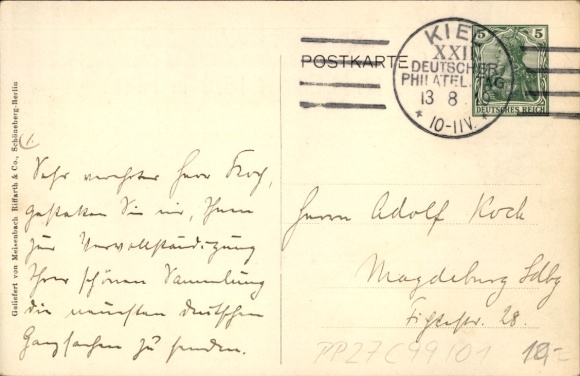 Geliefert von Meisenbach Riffarth & Co., Schöneberg-Berlin
POSTKARTE
KIEL
XXII
DEUTSCHER
PHILATEL. TAG
13 8 10
* 10-11V. *
5 5
DEUTSCHES REICH
Sehr verehrter Herr Koch,
gestatten Sie mir, Ihnen
zur Vervollständigung
Ihrer schönen Sammlung
die neuesten deutschen
Ganzsachen zu senden.
Herrn Adolf Koch
Magdeburg Sdbg
Fichtestr. 28.
PP27C99/01
12,=